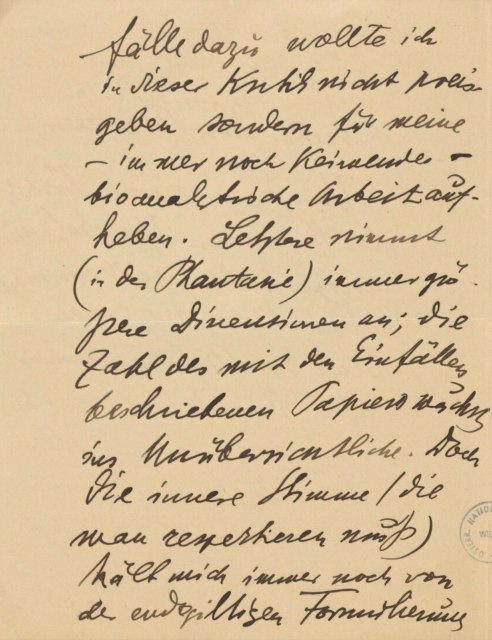 fälle dazu wollte ich
in dieser Kritik nicht preis
geben sondern für meine
– immer noch keimende –
bioanalytische Arbeit auf-
heben. Letztere nimmt
(in der Phantasie) immer grö-
ßere Dimensionen an; die
Zahl des mit den Einfällen
beschriebenen Papiers wächst
ins Unübersichtliche. Doch
die innere Stimme (die
man respektieren muß)
hält mich immer noch von
der endgiltigen Formulierung